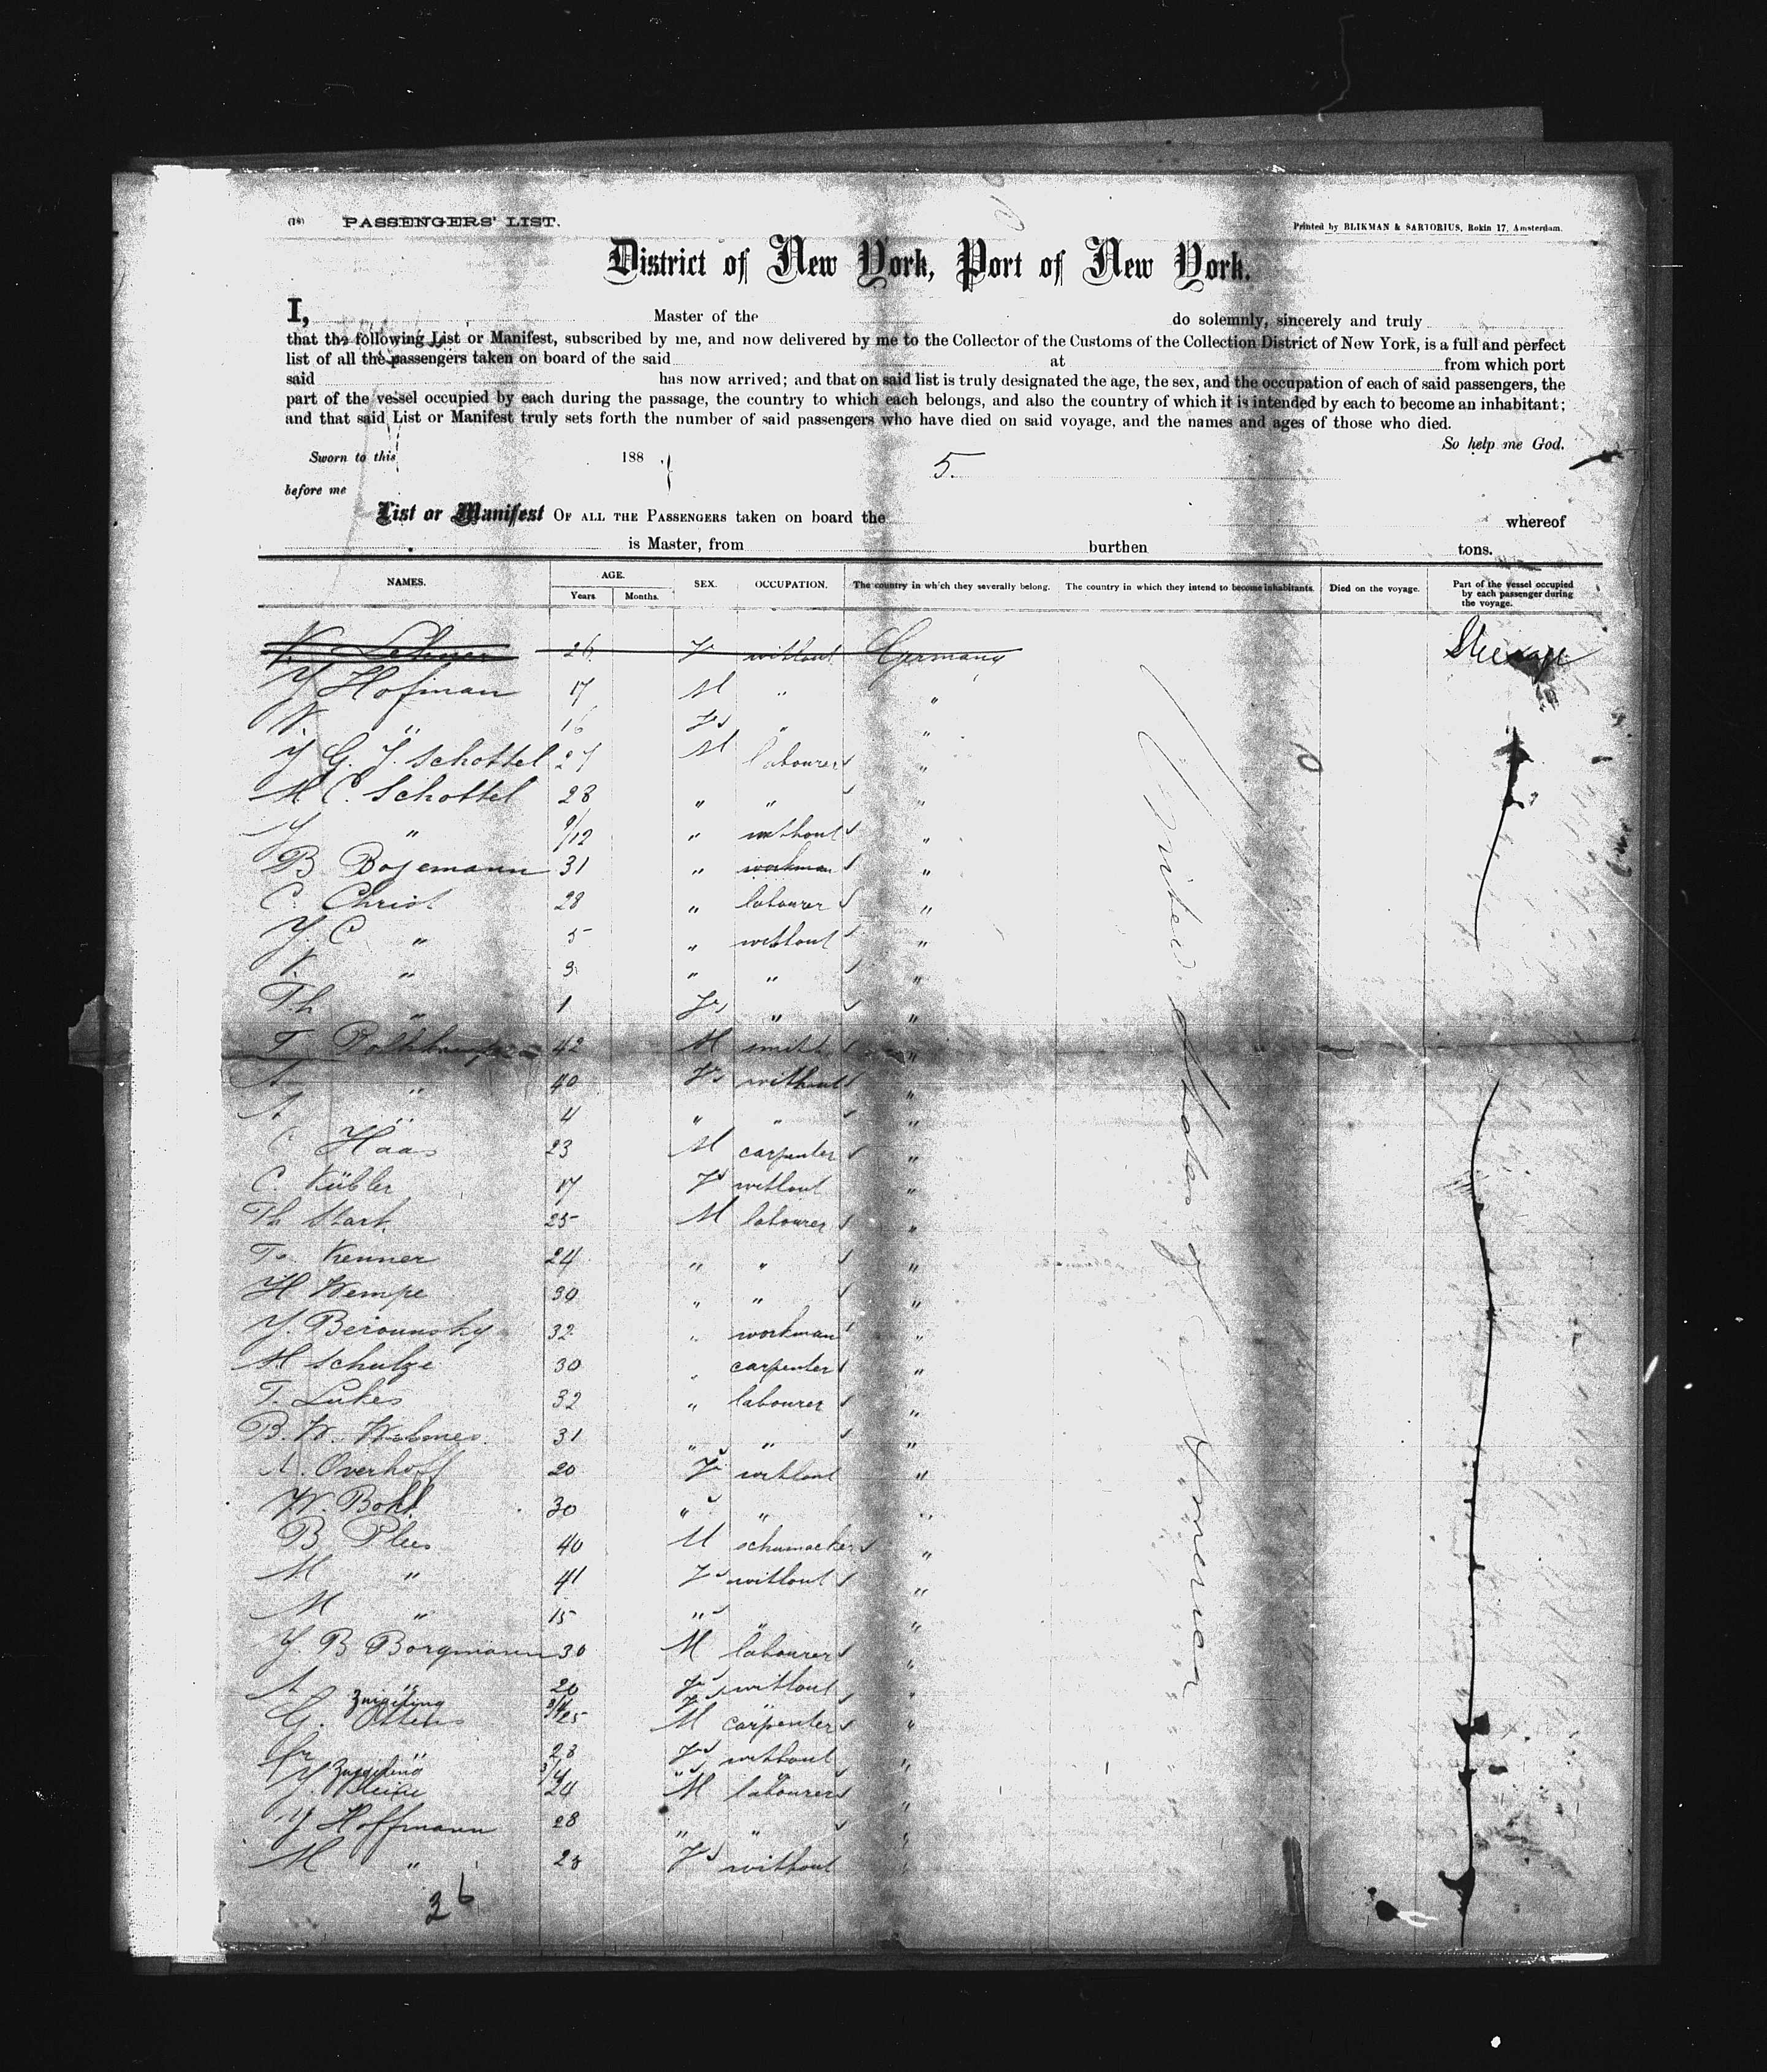 (18) PASSENGERS' LIST.
Printed by BLIKMAN & SARTORIUS, Rokin 17, Amsterdam.
District of New York, Port of New York.
I, Master of the do solemnly, sincerely and truly
that the following List or Manifest, subscribed by me, and now delivered by me to the Collector of the Customs of the Collection District of New York, is a full and perfect
list of all the passengers taken on board of the said at from which port
said has now arrived; and that on said list is truly designated the age, the sex, and the occupation of each of said passengers, the
part of the vessel occupied by each during the passage, the country to which each belongs, and also the country of which it is intended by each to become an inhabitant;
and that said List or Manifest truly sets forth the number of said passengers who have died on said voyage, and the names and ages of those who died.
So help me God.
Sworn to this 188
5.
before me
List or Manifest OF ALL THE PASSENGERS taken on board the whereof
is Master, from burthen tons.
NAMES. AGE. SEX. OCCUPATION. The country in which they severally belong. The country in which they intend to become inhabitants. Died on the voyage. Part of the vessel occupied by each passenger during the voyage.
Years. Months.
26 without Germany Steerage
Y Hofman 17 M " "
" 16 " "
Y G. Y. Schottel 27 M labourer "
M C. Schottel 28 " " "
Y " 9/12 " without "
B Bosemann 31 " workman "
C. Christ 28 " labourer "
Y. C " 5 " without "
" 3 " " "
Th " 1 " "
T. 42 M smith "
A " 40 without "
A " 4 " " "
C Haas 23 M carpenter "
C. Kübler 17 without "
Th Stark 25 M labourer "
Kenner 24 " " "
H Kempe 30 " " "
Y. Berounsky 32 " workman "
M Schulze 30 " carpenter "
T. Lukes 32 " labourer "
B. W. 31 " " "
A. Overhoff 20 without "
W. Bohl 30 " " "
B Plees 40 M schumacker "
M " 41 without "
M " 15 " " "
Y. B Borgmann 30 M labourer "
A " 20 without "
G. 25 M carpenter "
" 28 without "
Y. 24 M labourer "
Y Hoffmann 28 " " "
M " 28 without "
United States of America
36